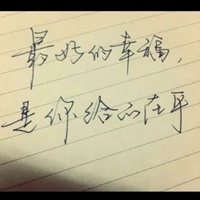 最好的幸福，
是你给的在乎